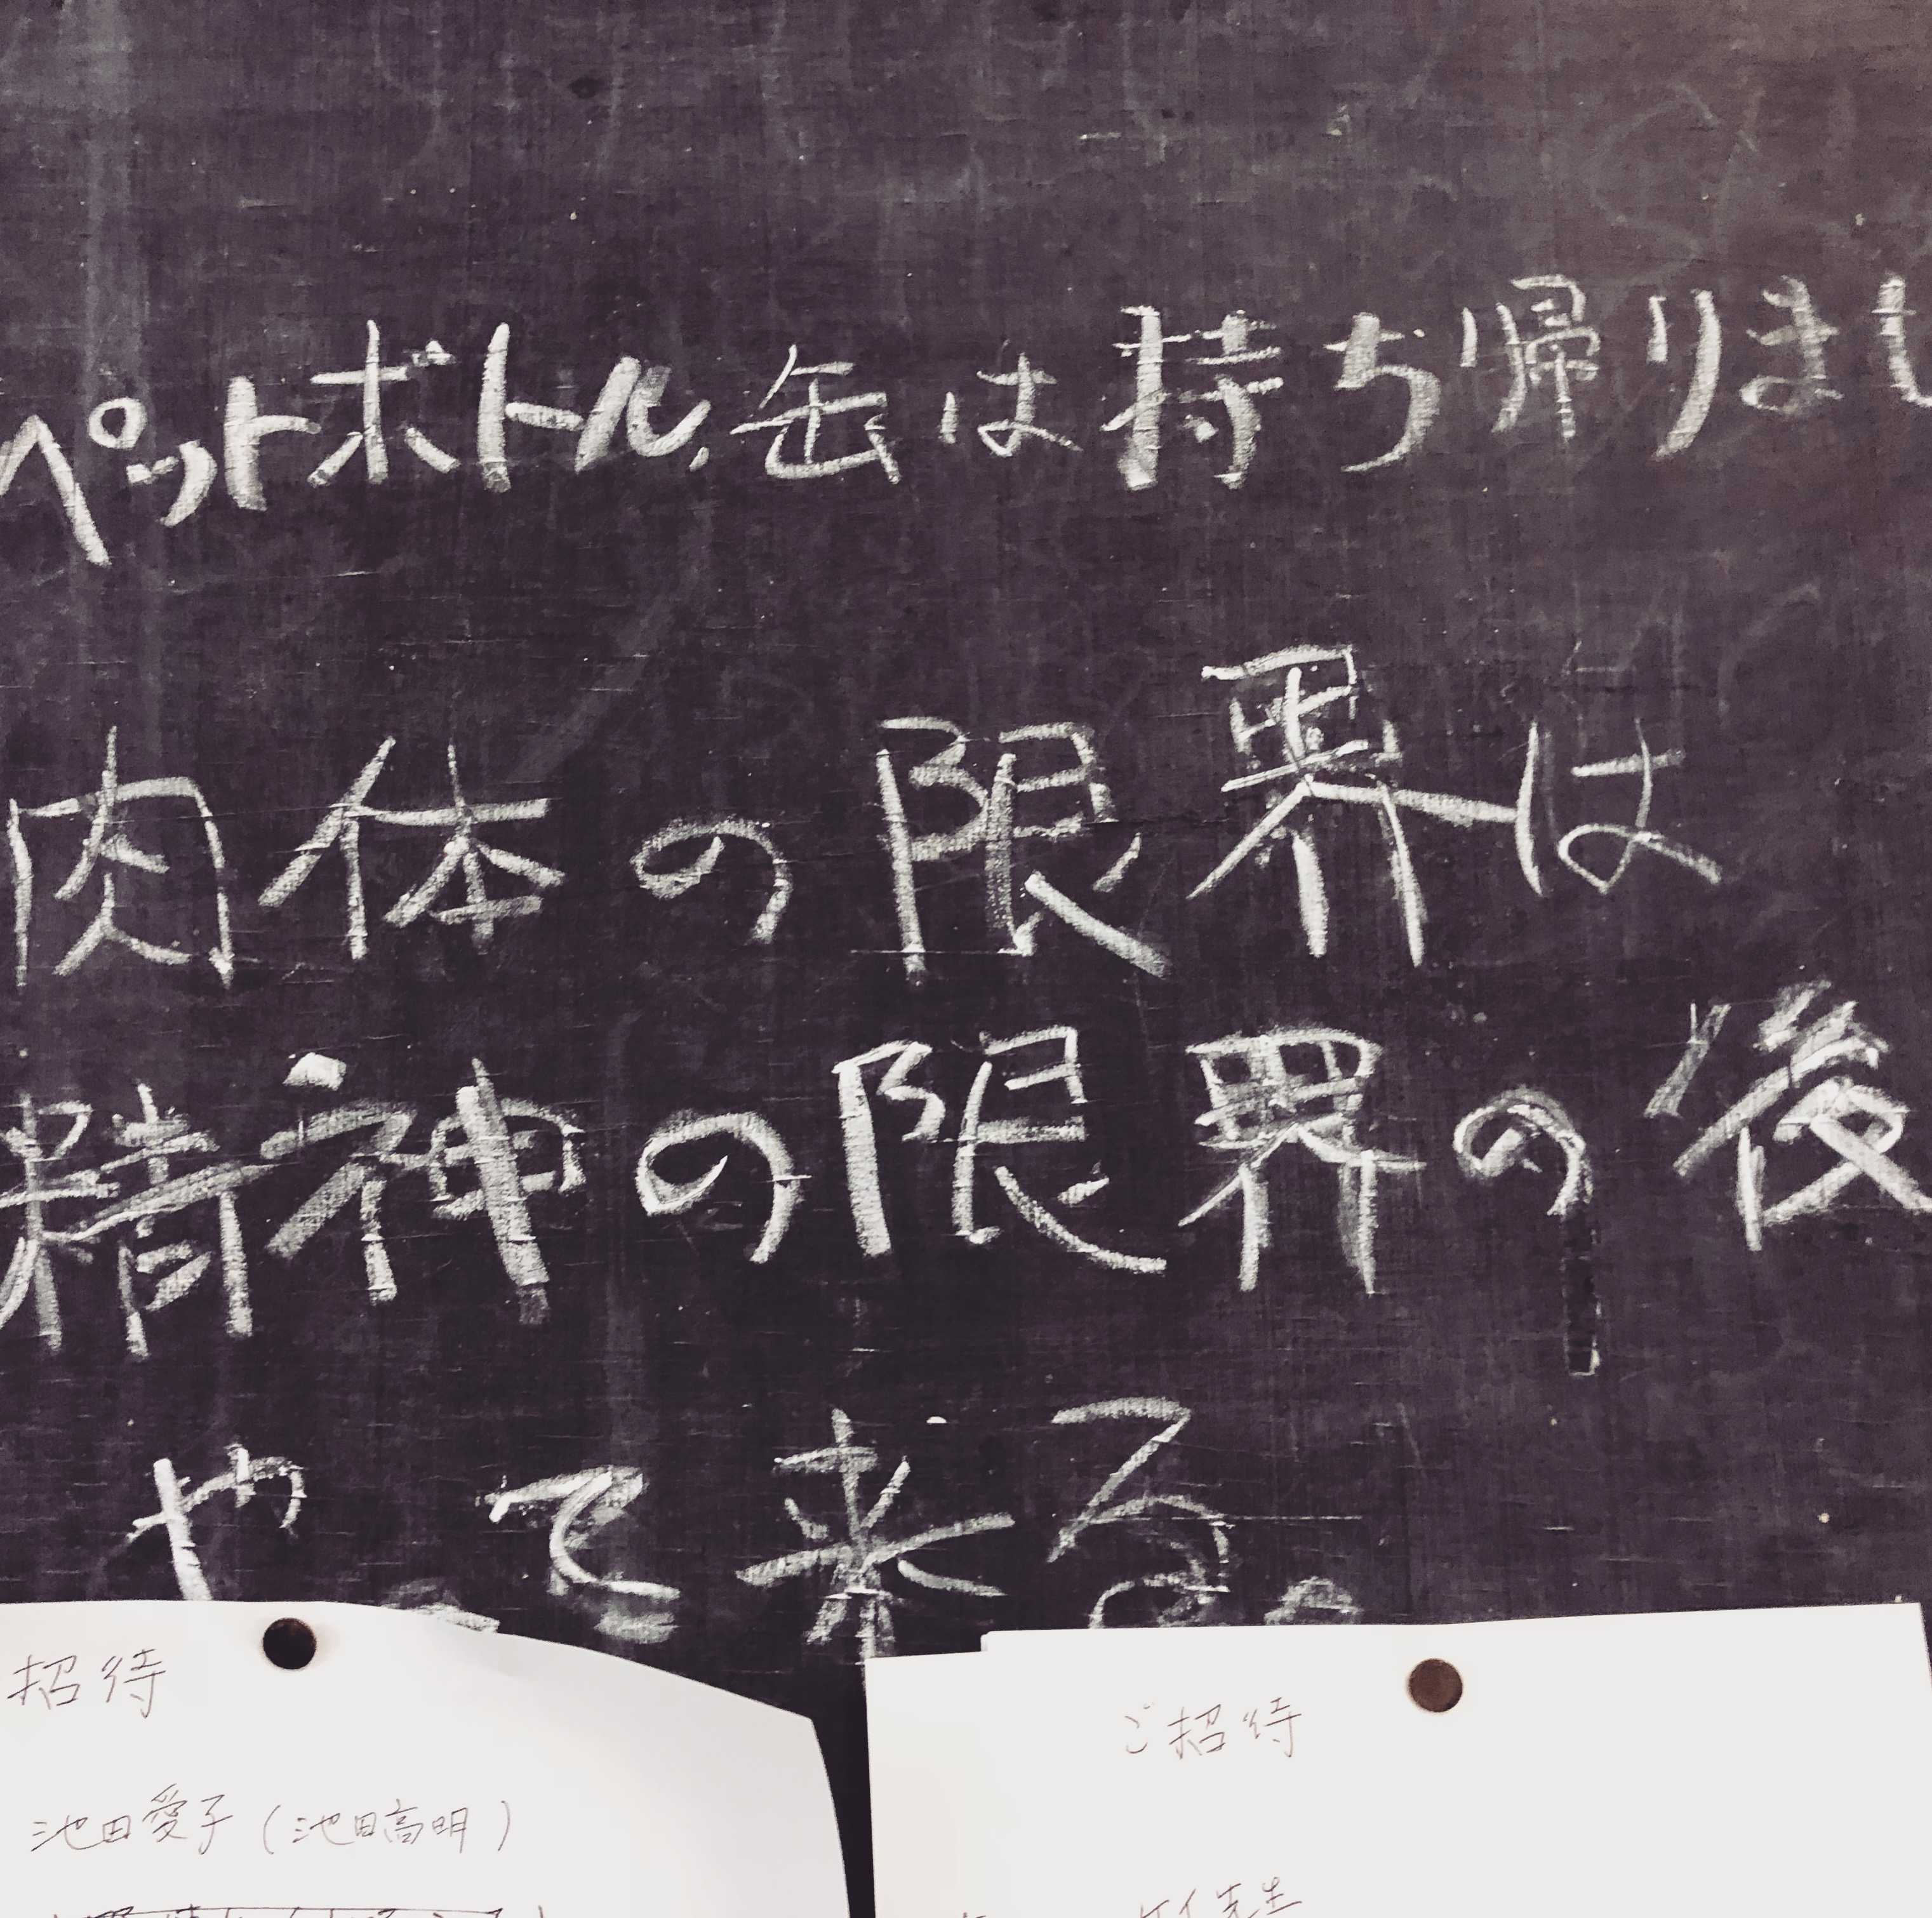 ペットボトル、缶は持ち帰りまし
肉体の限界は
精神の限界の後
やって来る。
招待
池田愛子(池田高明)
ご招待
先生